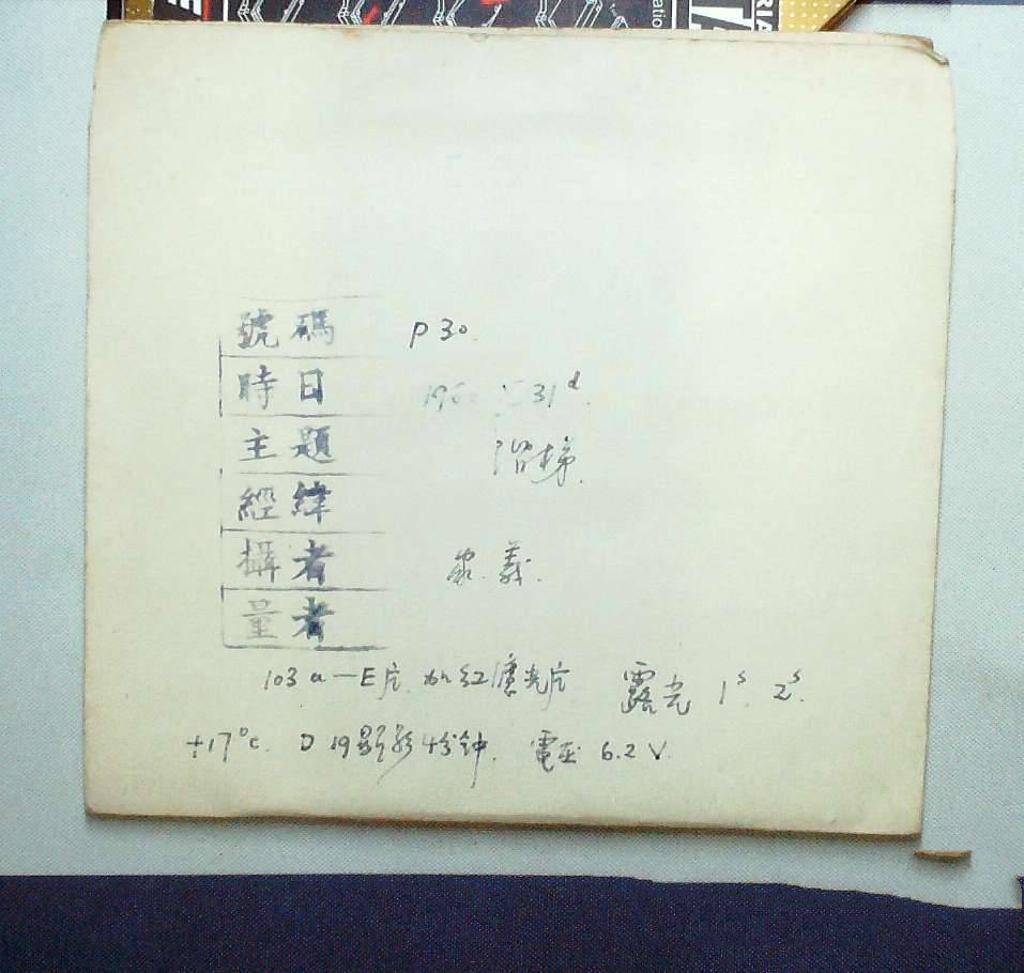 號碼 P30.
時日 31d.
主題 階梯.
經緯
攝者 義.
量者
103a-E片. 加红濾光片 露光 1s. 2s.
+17°c. D19顯影4分钟. 電压 6.2V.